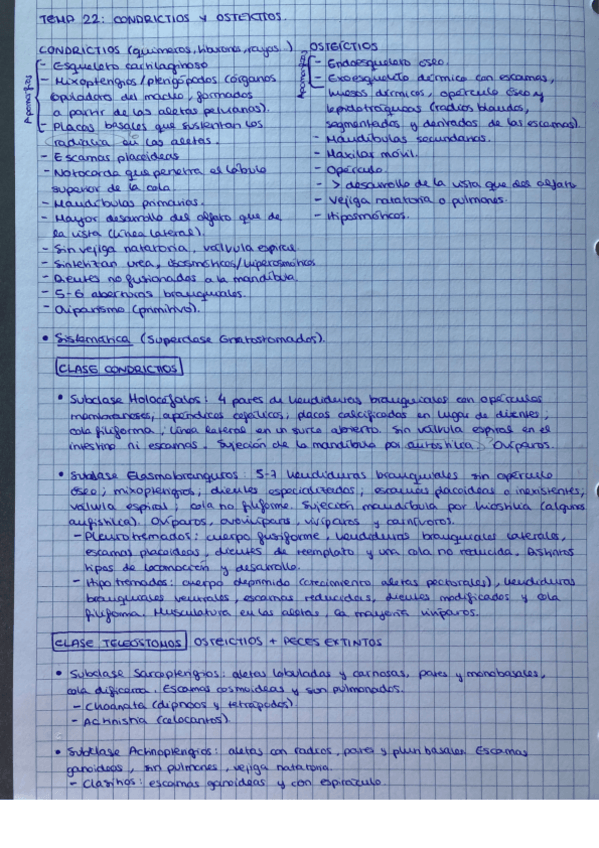 TEMA 22: CONDRICTIOS Y OSTEICTIOS.
CONDRICTIOS (quimeras, tiburones, rayas..)
Apomorfías
- Esqueleto cartilaginoso
- Mixopterigios/pterigópodos (órganos
copulador del macho, formados
a partir de las aletas pelvianas).
- Placas basales que sustentan los
radialia en las aletas.
- Escamas placoideas
- Notocorda que penetra el lóbulo
superior de la cola.
- Mandíbulas primarias.
- Mayor desarrollo del olfato que de
la vista (línea lateral).
- Sin vejiga natatoria, válvula espiral
- Sintetizan urea, isosmóticos/hiperosmóticos
- Dientes no fusionados a la mandíbula.
- 5-6 aberturas branquiales.
- Oviparismo (primitivo).
OSTEICTIOS
Apomorfías
- Endoesqueleto óseo.
- Exoesqueleto dérmico con escamas,
huesos dérmicos, opérculo óseo y
lepidotriquias (radios blandos,
segmentados y derivados de las escamas).
- Mandíbulas secundarias.
- Maxilar móvil.
- Opérculo.
- > desarrollo de la vista que del olfato
- Vejiga natatoria o pulmones.
- Hiposmóticos.
• Sistemática (Superclase Gnatostomados).
CLASE CONDRICTIOS
• Subclase Holocéfalos: 4 pares de hendiduras branquiales con opérculos
membranosos, apéndices cefálicos, placas calcificadas en lugar de dientes,
cola filiforme, línea lateral en un surco abierto. Sin válvula espiral en el
intestino ni escamas. Sujeción de la mandíbula por autostílica. Ovíparos.
• Subclase Elasmobranquios: 5-7 hendiduras branquiales sin opérculo
óseo; mixopterigios, dientes especializados; escamas placoideas o inexistentes;
válvula espiral; cola no filiforme. Sujeción mandíbula por hiostílica (algunos
anfistílica). Ovíparos, ovovivíparos, vivíparos y carnívoros).
- Pleurotremados: cuerpo fusiforme, hendiduras branquiales laterales,
escamas placoideas, dientes de reemplazo y una cola no reducida. Distintos
tipos de locomoción y desarrollo.
- Hipotremados: cuerpo deprimido (crecimiento aletas pectorales), hendiduras
branquiales ventrales, escamas reducidas, dientes modificados y cola
filiforme. Musculatura en las aletas, la mayoría vivíparos.
CLASE TELEÓSTOMOS OSTEICTIOS + PECES EXTINTOS
• Subclase Sarcopterigios: aletas lobuladas y carnosas, pares y monobasales,
cola dificerca. Escamas cosmoideas y son pulmonados.
- Choanata (dipnoos y tetrápodos)
- Actinistia (celacantos).
• Subclase Actinopterigios: aletas con radios, pares y pluribasales. Escamas
ganoideas, sin pulmones, vejiga natatoria.
- Clasinos: escamas ganoideas y con espiráculo.